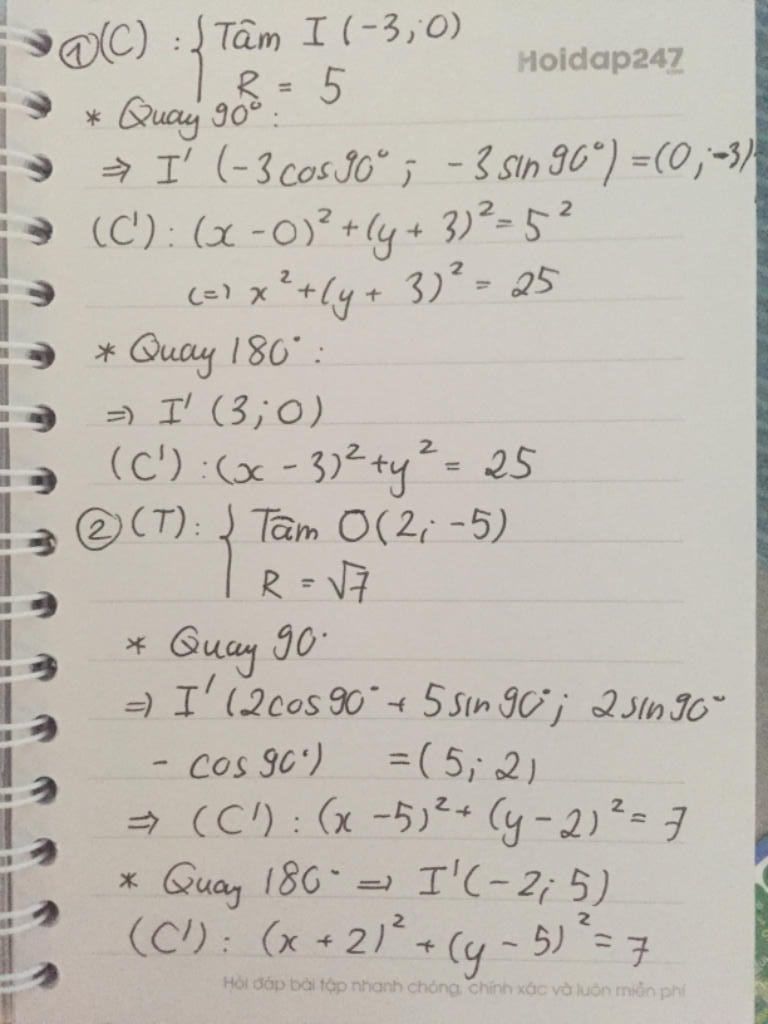 ① (C) : { Tâm I (-3; 0)
Hoidap247
R = 5
* Quay 90° :
⇒ I' (-3cos90° ; -3sin90°) = (0; -3)
(C') : (x - 0)² + (y + 3)² = 5²
<=> x² + (y + 3)² = 25
* Quay 180° :
⇒ I' (3; 0)
(C') : (x - 3)² + y² = 25
② (T) : { Tâm O(2; -5)
R = √7
* Quay 90°
⇒ I' (2cos90° + 5sin90°; 2sin90°
- cos90°) = (5; 2)
⇒ (C') : (x - 5)² + (y - 2)² = 7
* Quay 180° ⇒ I'(-2; 5)
(C') : (x + 2)² + (y - 5)² = 7
Hỏi đáp bài tập nhanh chóng, chính xác và luôn miễn phí